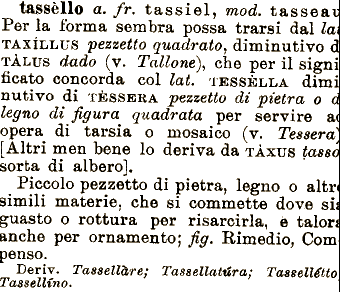 tassèllo a. fr. tassiel, mod. tasseau
Per la forma sembra possa trarsi dal lat
TAXÍLLUS pezzetto quadrato, diminutivo d
TÀLUS dado (v. Tallone), che per il signi
ficato concorda col lat. TESSÈLLA dimi
nutivo di TÈSSERA pezzetto di pietra o d
legno di figura quadrata per servire ad
opera di tarsia o mosaico (v. Tessera)
[Altri men bene lo deriva da TÀXUS tasso
sorta di albero].
Piccolo pezzetto di pietra, legno o altre
simili materie, che si commette dove sia
guasto o rottura per risarcirla, e talora
anche per ornamento; fig. Rimedio, Com
penso.
Deriv. Tassellàre; Tassellatúra; Tassellétto
Tassellíno.